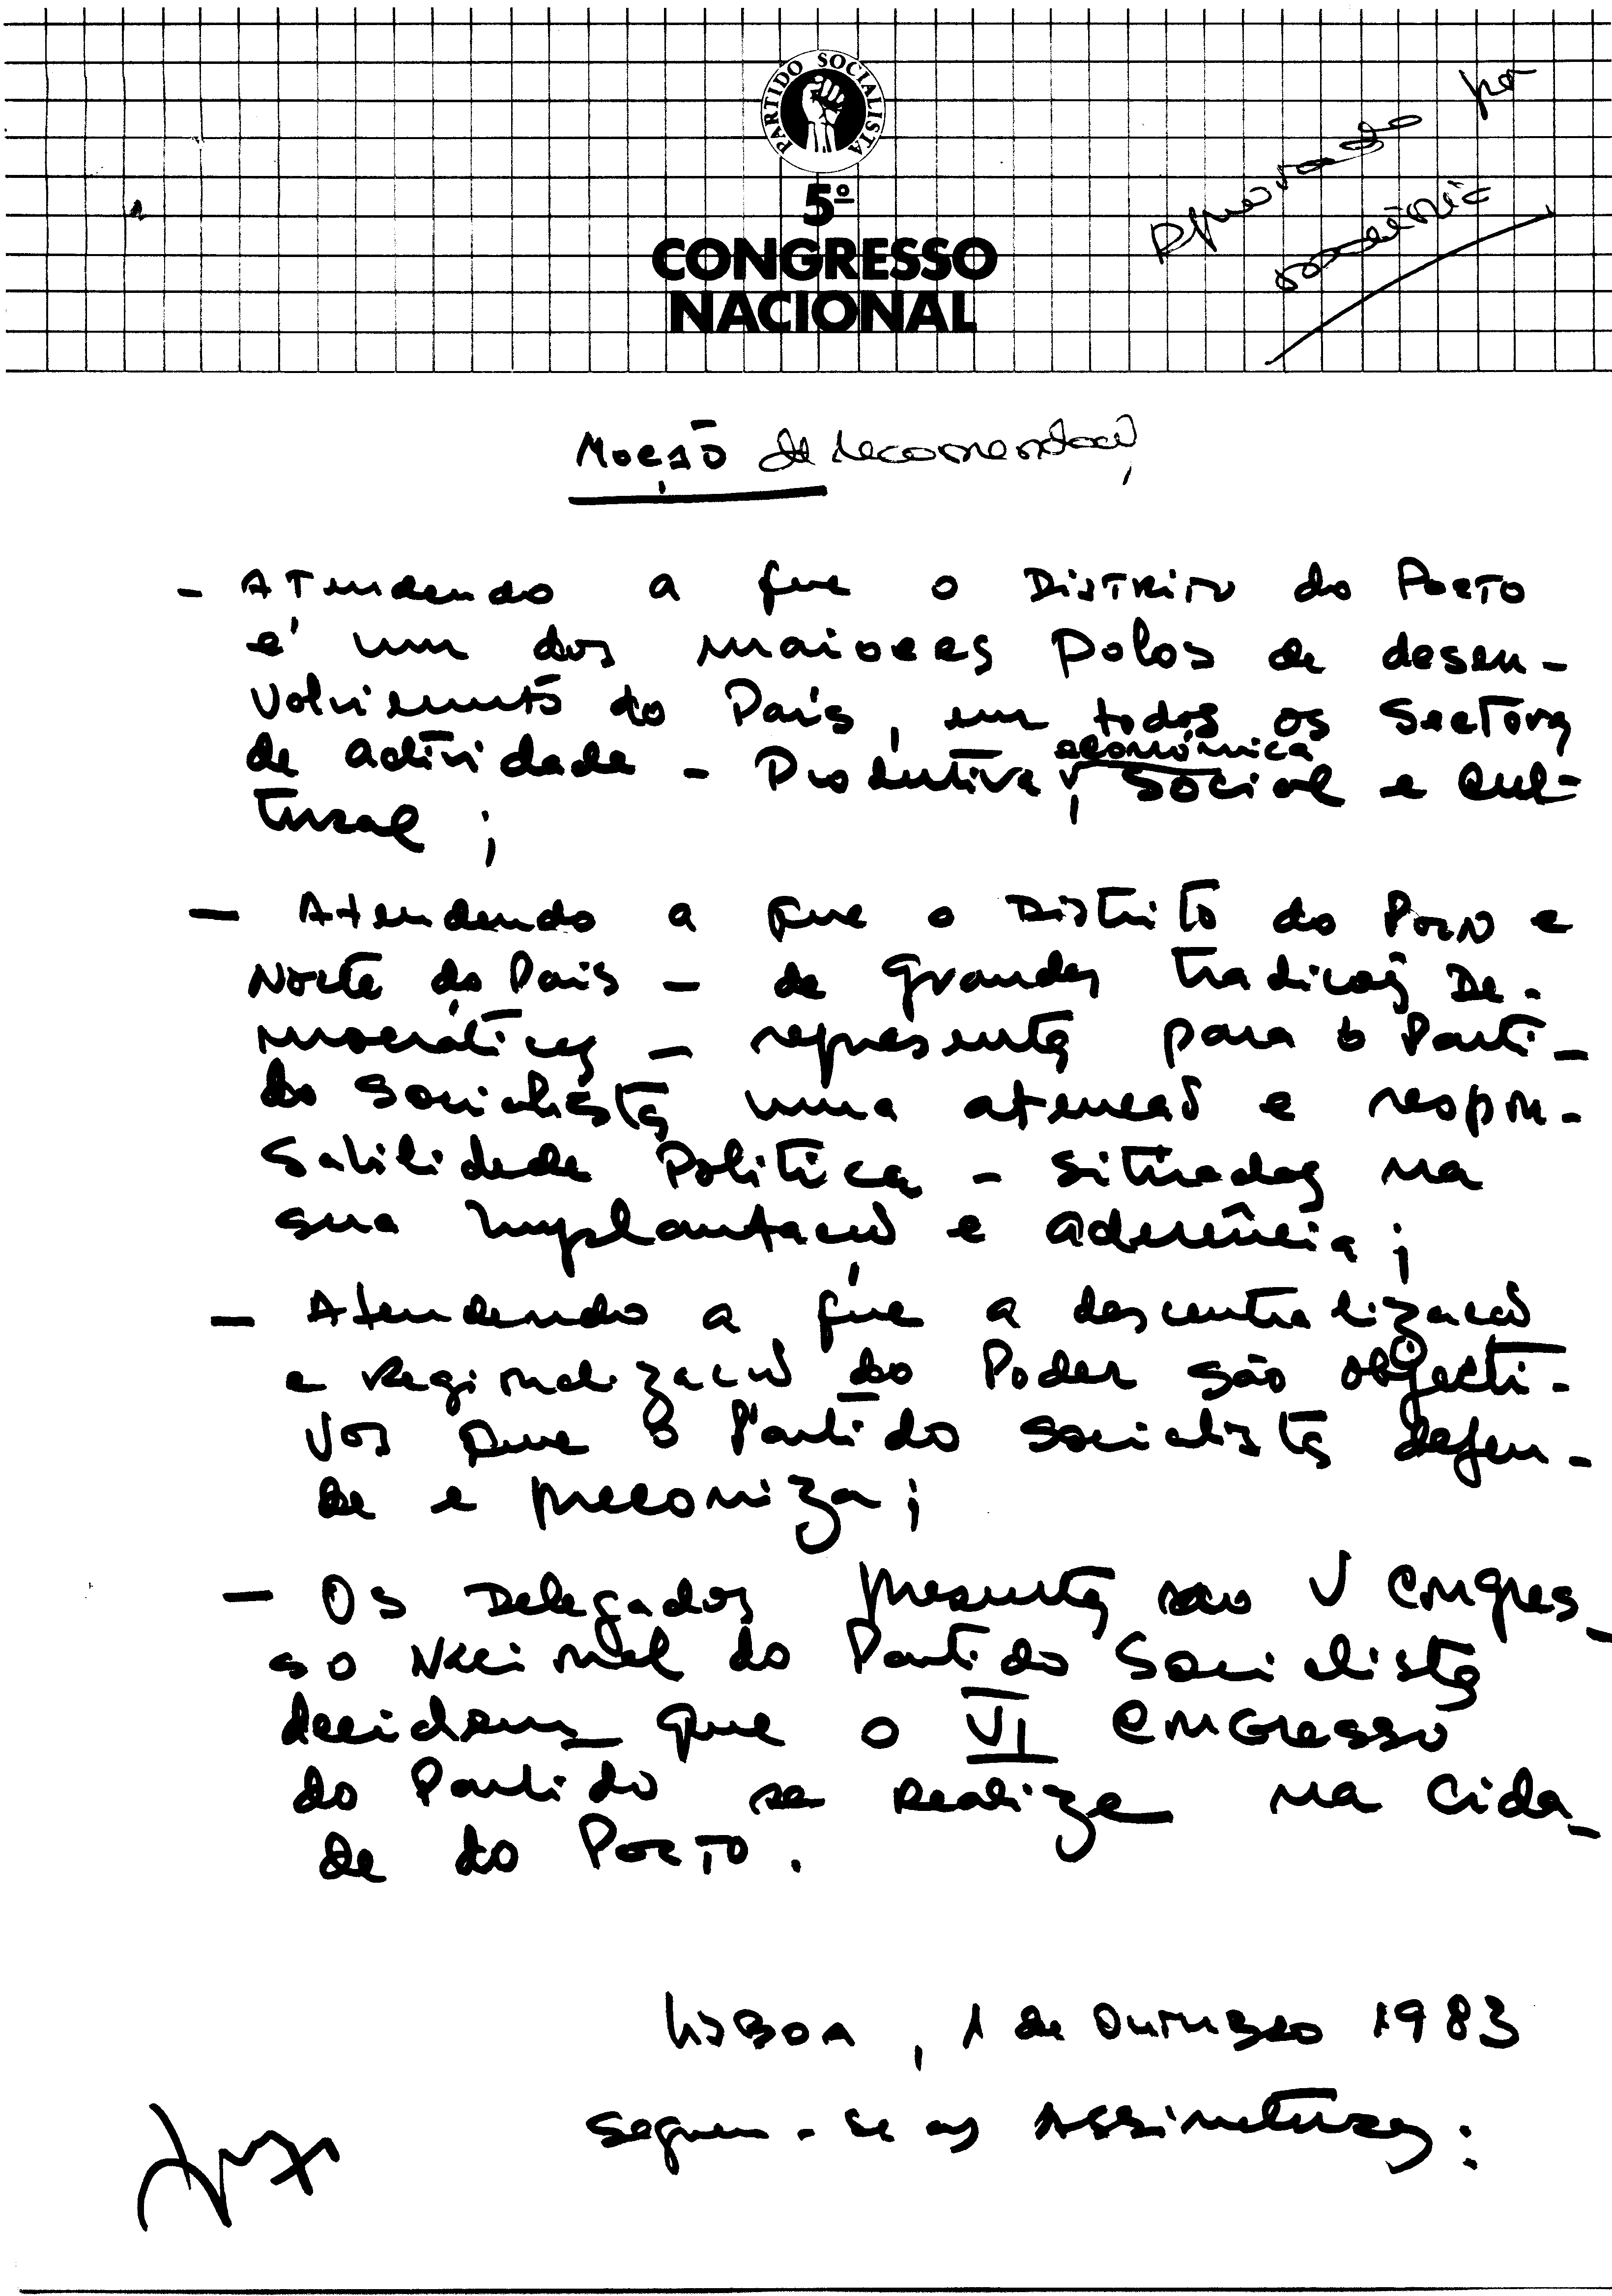 PARTIDO SOCIALISTA
5º
CONGRESSO
NACIONAL
Aprovado por
maioria
Moção de recomendação
- Atendendo a que o Distrito do Porto
é um dos maiores polos de desen-
volvimento do País, em todos os Sectores
de actividade - Produtiva, económica
Social e Cul-
tural;
- Atendendo a que o Distrito do Porto e
Norte do País - de grandes tradições De-
mocráticas - representa para o Parti-
do Socialista uma atenção e respon-
sabilidade Politica - situadas na
sua Implantação e aderência;
- Atendendo a que a descentralização
e Regionalização do Poder são objecti-
vos que o Partido Socialista defen-
de e preconiza;
- Os Delegados presentes no V Congres-
so Nacional do Partido Socialista
decidem que o VI Congresso
do Partido se Realize na Cida-
de do Porto.
Lisboa, 1 de Outubro 1983
Seguem-se as Assinaturas: